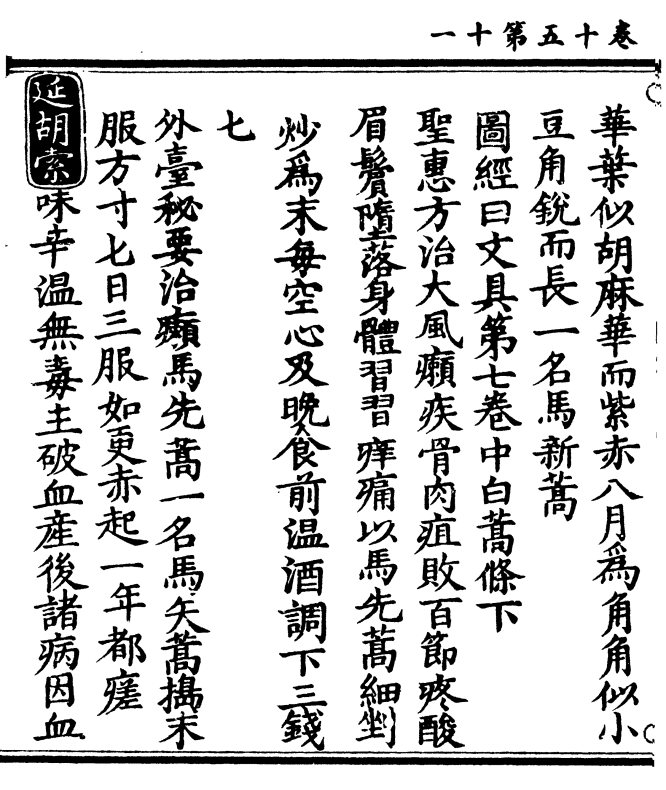 卷十五第十一
華葉似胡麻華而紫赤八月為角角似小
豆角銳而長一名馬新蒿
圖經曰文具第七卷中白蒿條下
聖惠方治大風癩疾骨肉疽敗百節疼酸
眉鬢墮落身體習習痒痛以馬先蒿細剉
炒為末每空心及晚食前温酒調下三錢
七
外臺秘要治癩馬先蒿一名馬矢蒿擣末
服方寸七日三服如更赤起一年都瘥
延胡索味辛温無毒主破血產後諸病因血